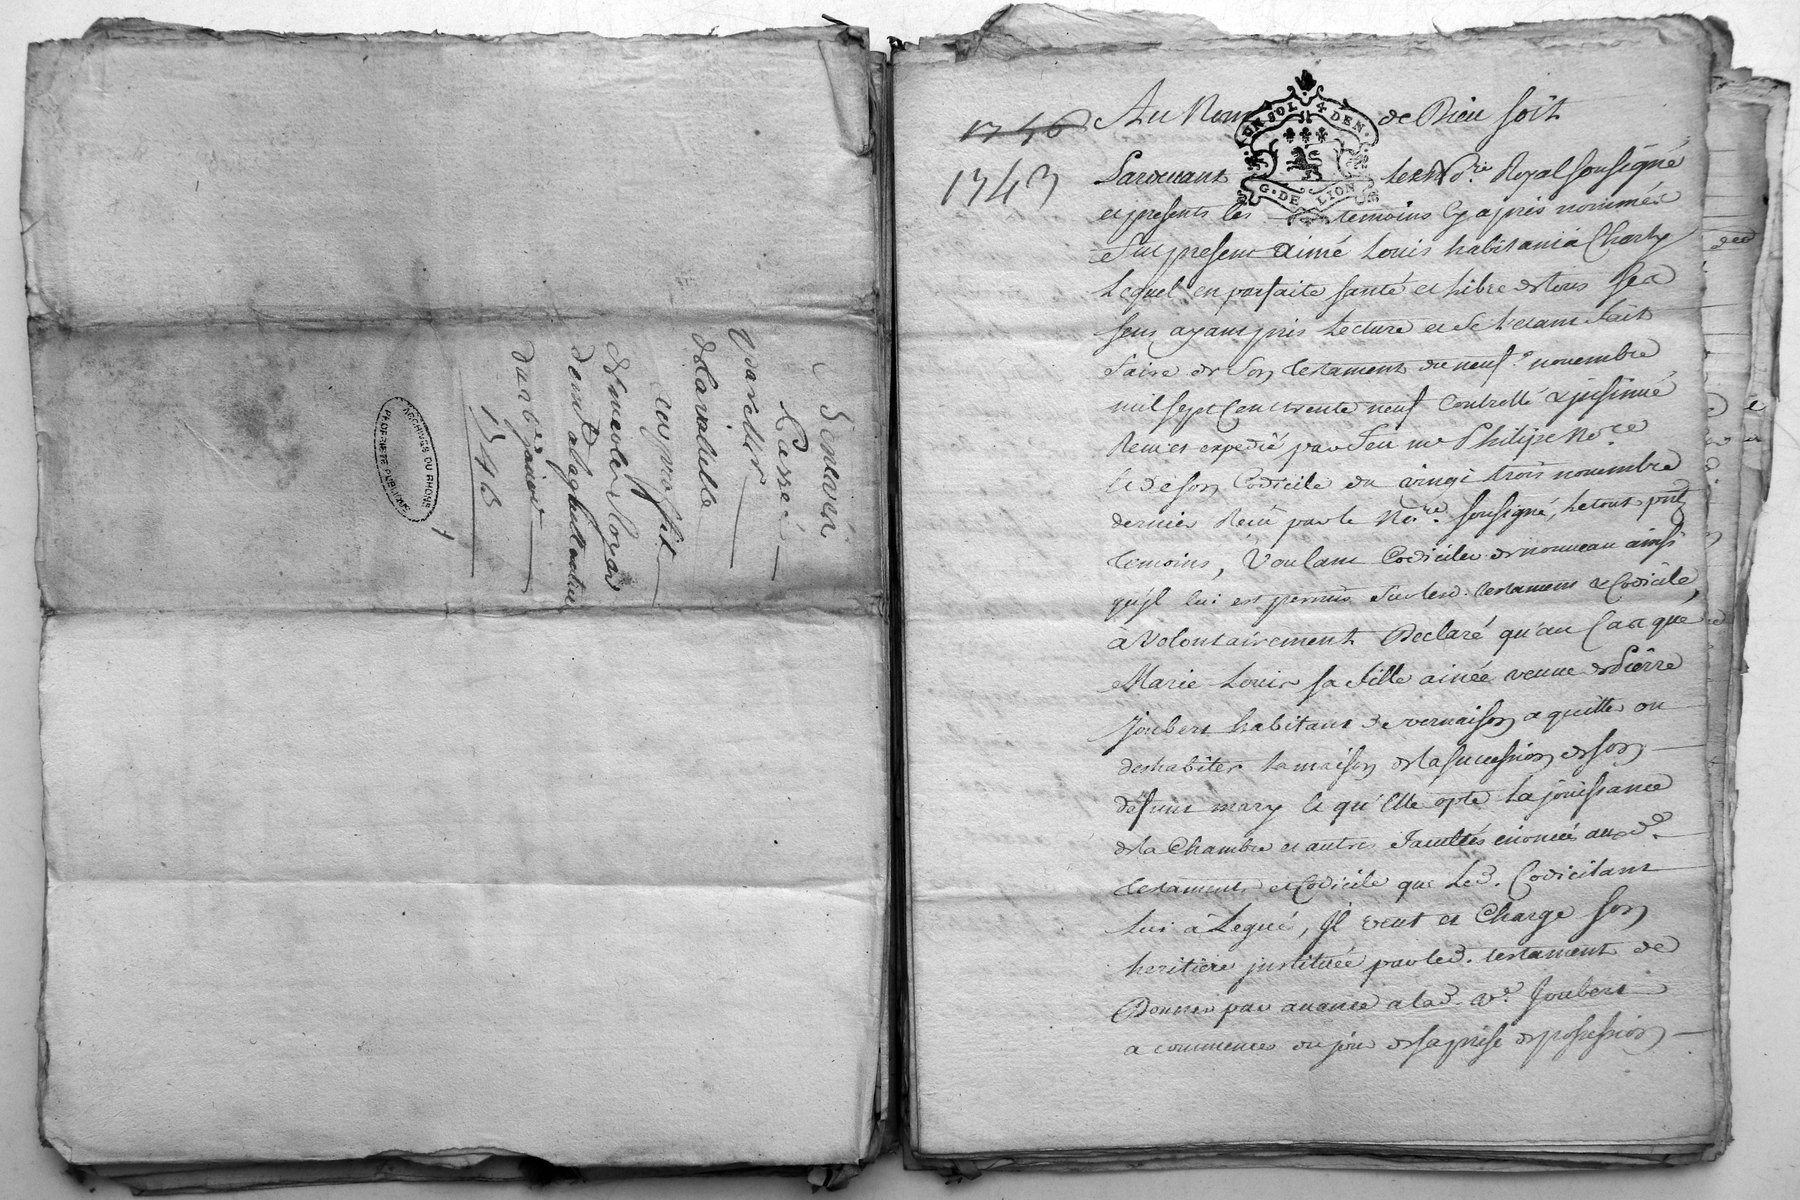 Benevis
Passé
Par Mr
Delarabelle
au profit
de
du 6e janvier
1746
ARCHIVES DU RHONE
PROPRIETE PUBLIQUE
1746
1743
UN SOL 4 DEN.
G. DE LION
Au Nom de Dieu soit
Pardevant le No.re Royal sousigné
et presents les temoins cy apris nommés
Fut present aimé Louis habitant à Charly
Lequel en parfaite santé et libre de tous ses
sens, ayant pris Lecture et se l'etant fait
faire de son testament du neuf.e novembre
mil sept cent trente neuf Controllé & jnsinué
Reçu et expedié par feu me Philipe No.re
et de son Codicile du vingt trois novembre
dernier Reçu par le No.re sousigné, le tout pnt
temoins, Voulant Codiciler de nouveau ainsi
qu'jl lui est permis Sur led. testament & Codicile,
à volontairement Declaré qu'au Cas que
Marie Louis sa fille ainée veuve de Pierre
Joubert habitant de vernaison a quitté ou
deshabiter la maison de la succession de son
defunt mary et qu'Elle opte la jouissance
de la Chambre et autres facultés enoncés aux d.
testament et Codicile que Led. Codicilant
lui à Legué, Jl veut et Charge son
heritiere jnstituée par led. testament de
Donner par avance a lad. ve. Joubert
a commencer du jour de sa prise de possession